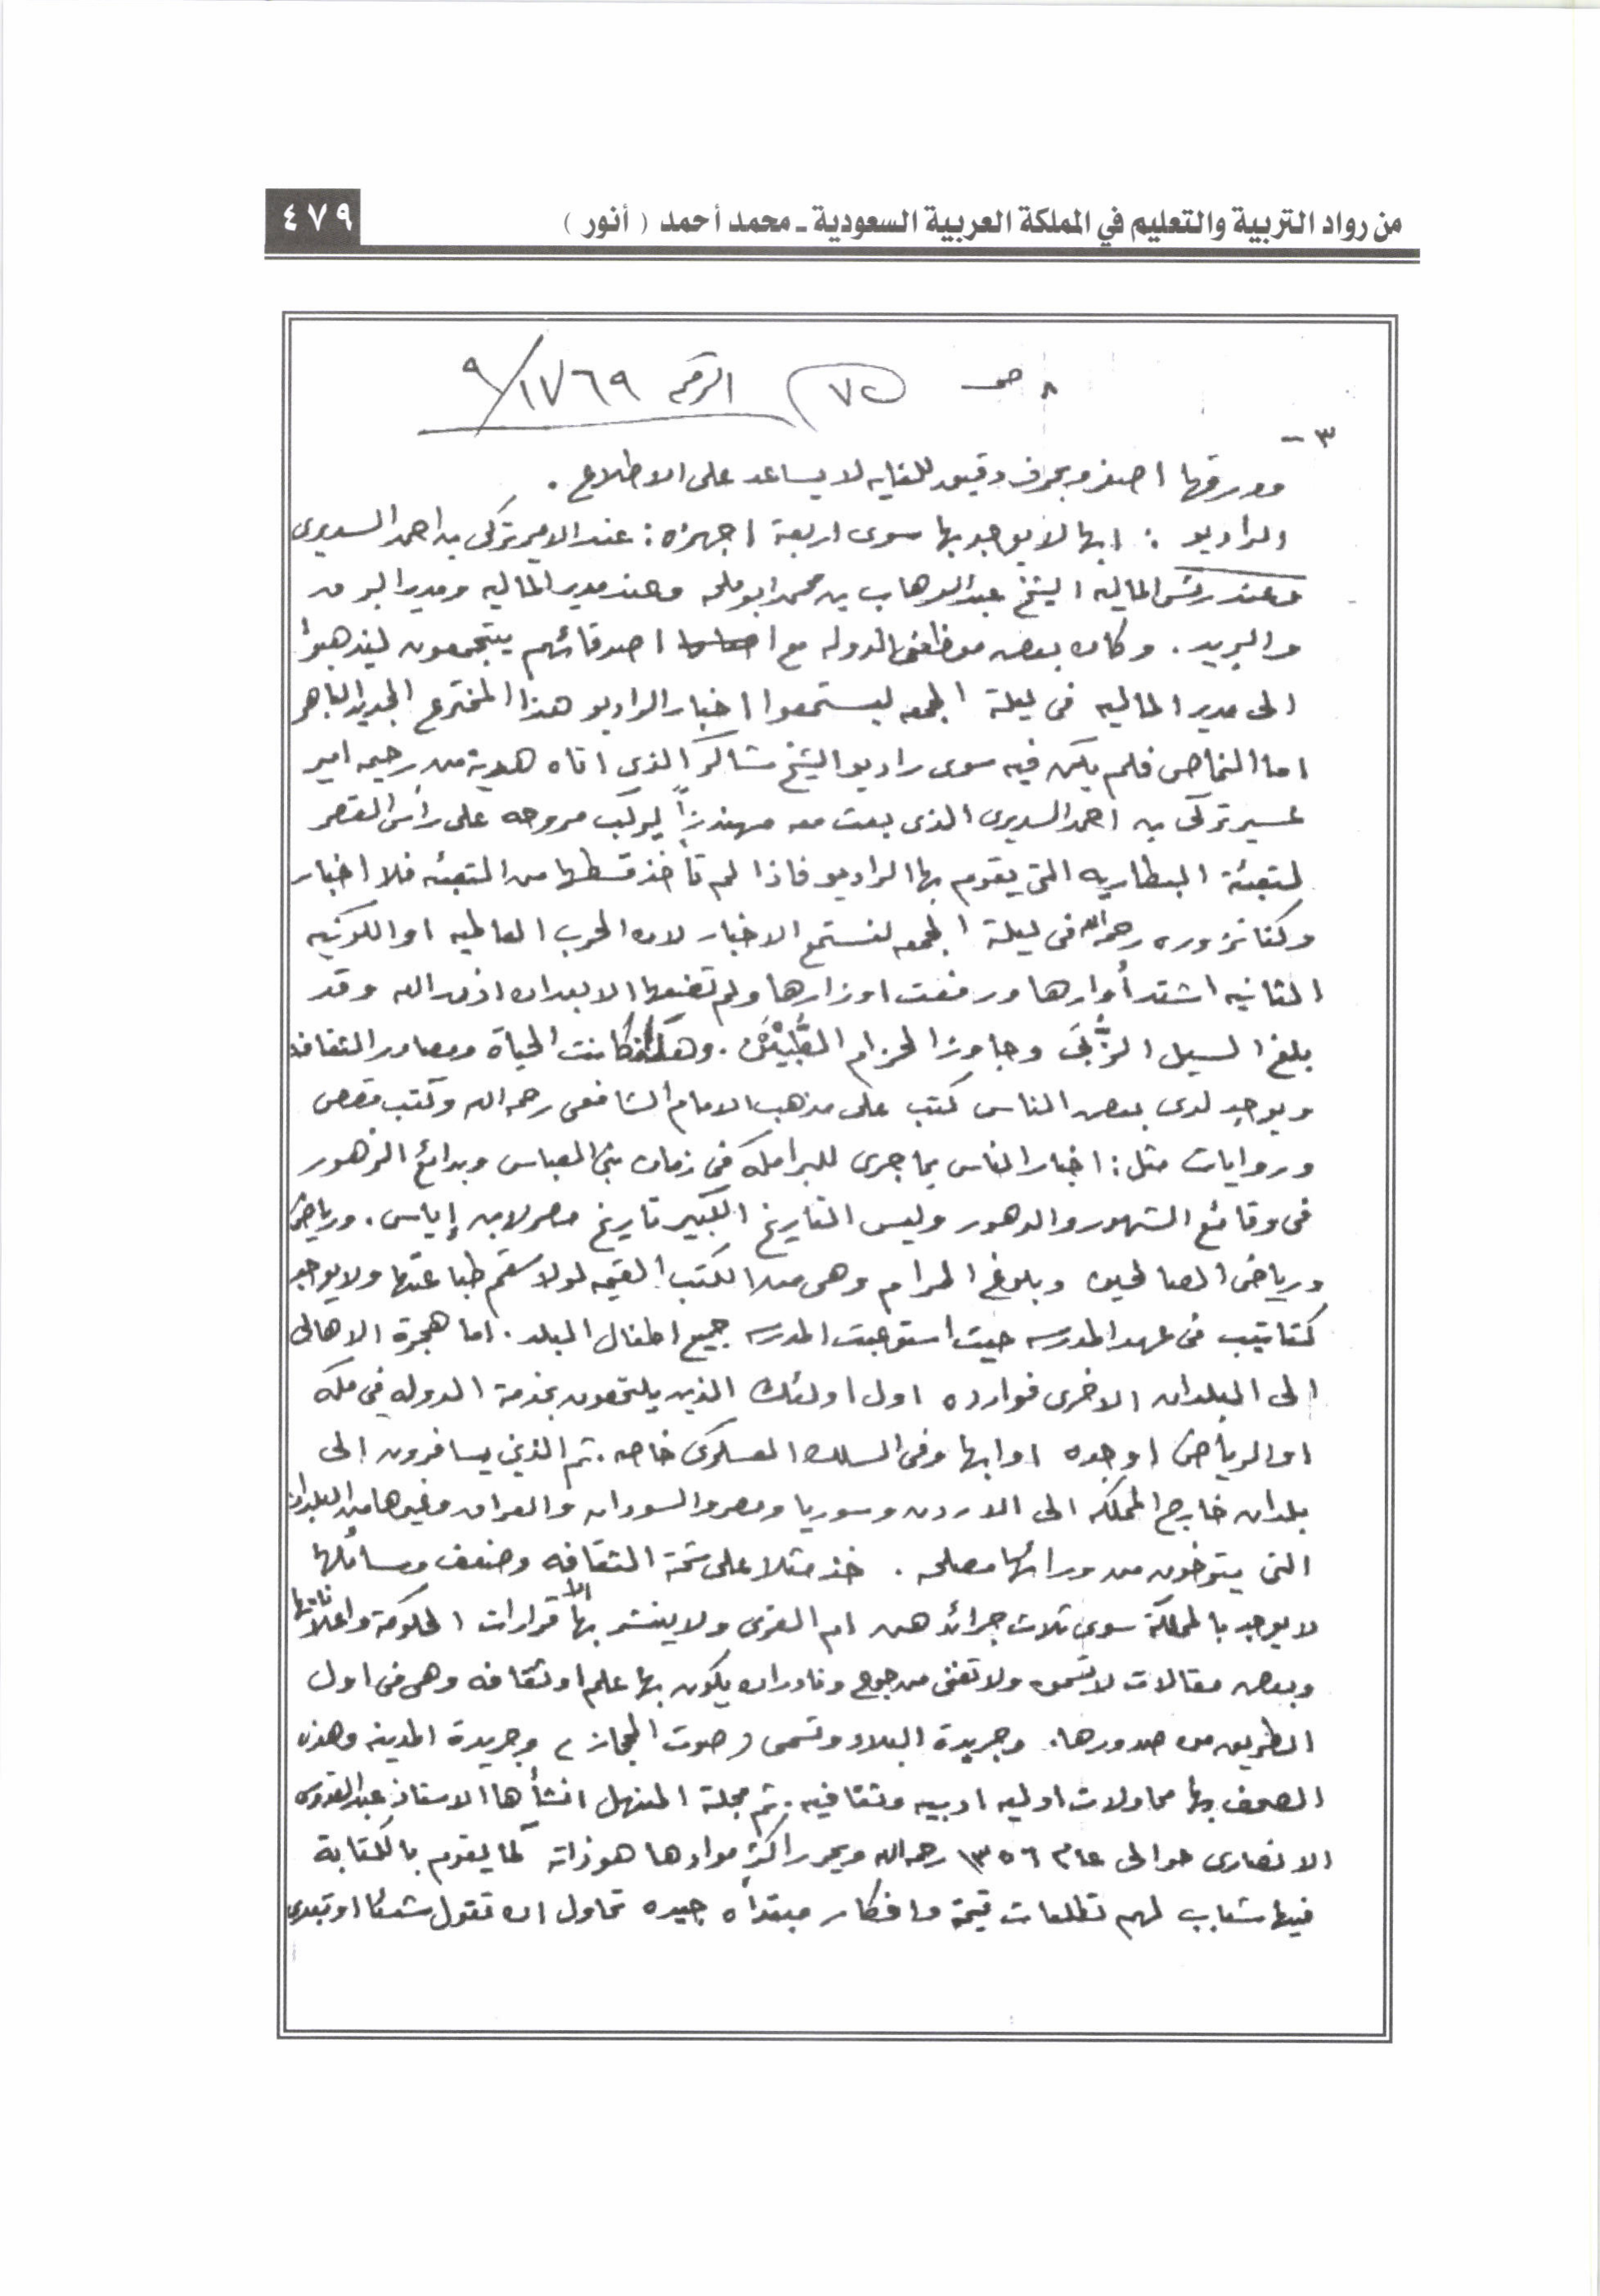 من رواد التربية والتعليم في المملكة العربية السعودية ـ محمد أحمد ( أنور )
٤٧٩
٨ ص ٧٥ الرقم ١٧٦٩/٩
٣ –
وورقها اصفر وبحرف دقيق للغايه لا يساعد على الاطلاع .
الراديو : ابها لا يوجد بها سوى اربعة اجهزه : عند الامير تركى بن احمد السديرى
وعند رئيس الماليه الشيخ عبدالوهاب بن محمد ابو ملحه وعند مدير الماليه ومدير البرق
والبريد . وكان بعض موظفى الدوله مع اصدقائهم يتجمعون ليذهبوا
الى مدير الماليه فى ليلة الجمعه ليستمعوا اخبار الراديو هذا المخترع الجديد الباهر
اما النماص فلم يكن فيه سوى راديو الشيخ شاكر الذي اتاه هدية من رحيمه امير
عسير تركى بن احمد السديرى الذى بعث معه مهندزاً ليركب مروحه على رأس القصر
لتعبئة البطاريه التى يقوم بها الراديو فاذا لم تأخذ قسطها من التعبئه فلا اخبار
وكنا نزوره رحمه الله فى ليلة الجمعه لنستمع الاخبار لان الحرب العالميه او الكونيه
الثانيه اشتد أوارها ورفعت اوزارها ولم تضعها الا بعد ان اذن الله وقد
بلغ السيل الزُّبَى وجاوز الحزام الطُّبْيَيْن . وهكذا كانت الحياة ومصادر الثقافه
ويوجد لدى بعض الناس كتب على مذهب الامام الشافعى رحمه الله وكتب قصص
وروايات مثل : اخبار الناس بما جرى للبرامكه فى زمان بنى العباس وبدائع الزهور
فى وقائع الشهور والدهور وليس التاريخ الكبير تاريخ مصر لابن إياس . ورياض
ورياض الصالحين وبلوغ المرام وهى من الكتب القيمه لولا سقم طباعتها ولا يوجد
كتاتيب فى عهد المدرسه حيث استوعبت المدرسه جميع اطفال البلد . اما هجرة الاهالى
الى البلدان الاخرى فوارده اول اولئك الذين يلتحقون بخدمة الدوله فى مكه
او الرياض او جده او ابها وفى السلك العسكرى خاصه . ثم الذين يسافرون الى
بلدان خارج المملكه الى الاردن وسوريا ومصر والسودان والعراق وغيرها من البلدان
التى يتوخون من ورائها مصلحه . خذ مثلا على شحة الثقافه وضعف وسائلها
لا يوجد بالمملكة سوى ثلاث جرائد هى ام القرى ولا ينشر بها الا قرارات الحكومة واعلاناتها
وبعض مقالات لا تسمن ولا تغنى من جوع ونادرا ان يكون بها علم او ثقافه وهى فى اول
الطريق من صدورها . وجريدة البلاد وتسمى ( صوت الحجاز ) وجريدة المدينه وهذه
الصحف بها محاولات اوليه ادبيه وثقافيه . ثم مجلة المنهل انشأها الاستاذ عبدالقدوس
الانصارى حوالى عام ١٣٥٦ رحمه الله ويحرر اكثر موادها هو ذاته كما يقوم بالكتابة
فيها شباب لهم تطلعات قيمة وافكار مبتدأه جيده تحاول ان تقول شيئا او تبدى